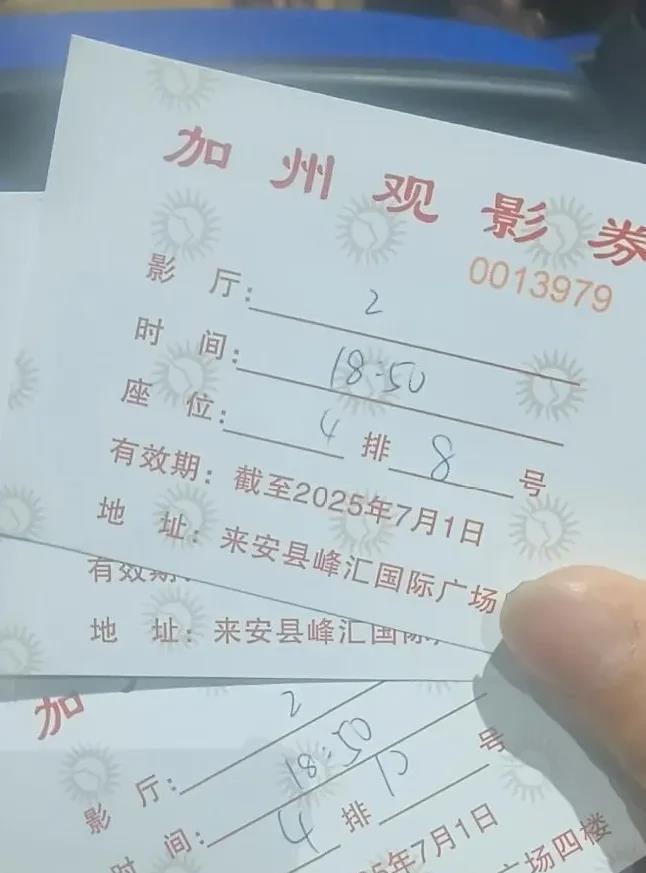 加州观影券
0013979
影 厅: 2
时 间: 18:50
座 位: 4 排 8 号
有效期: 截至2025年7月1日
地 址: 来安县峰汇国际广场
有效期:
地 址: 来安县峰汇国际
加
影 厅: 2
时 间: 18:50
4 排 号
5年7月1日
广场四楼